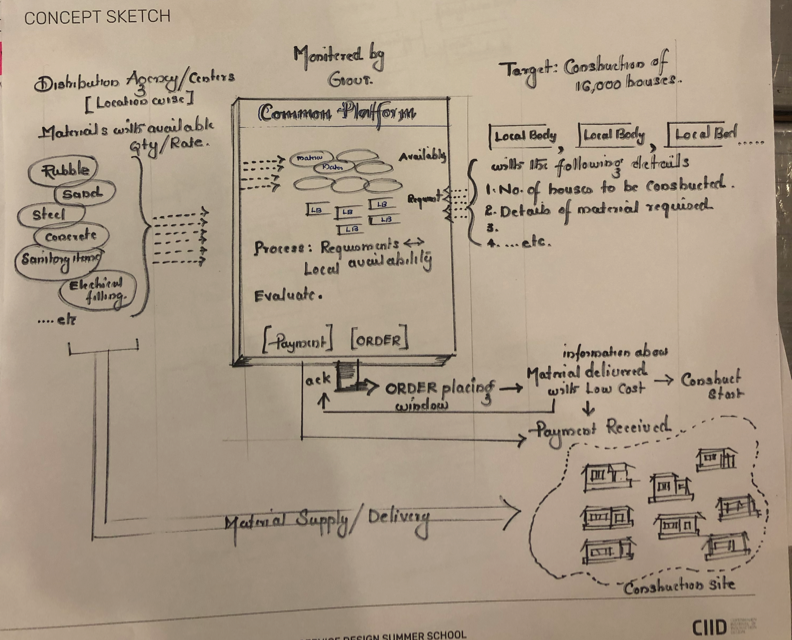 CONCEPT SKETCH
Monitered by
Govt.
Distribution Agency/Centers
[Location wise]
Materials with available
Qty/Rate.
Rubble
Sand
Steel
Concrete
Sanitory items
Electrical
fitting.
....etc
Common Platform
Available
Request
LB
LB
LB
LB
LB
LB
Process: Requirments ↔
Local availability
Evaluate.
[Payment] [ORDER]
Target: Construction of
16,000 houses.
Local Body, Local Body, Local Bod.....
with the following details
1. No. of houses to be constructed.
2. Details of material required
3.
4. ....etc.
ack
ORDER placing
window
information abow
Material delivered
with Low Cost
Construct
Start
Payment Received
Material Supply/Delivery
Construction site
SERVICE DESIGN SUMMER SCHOOL
CIID